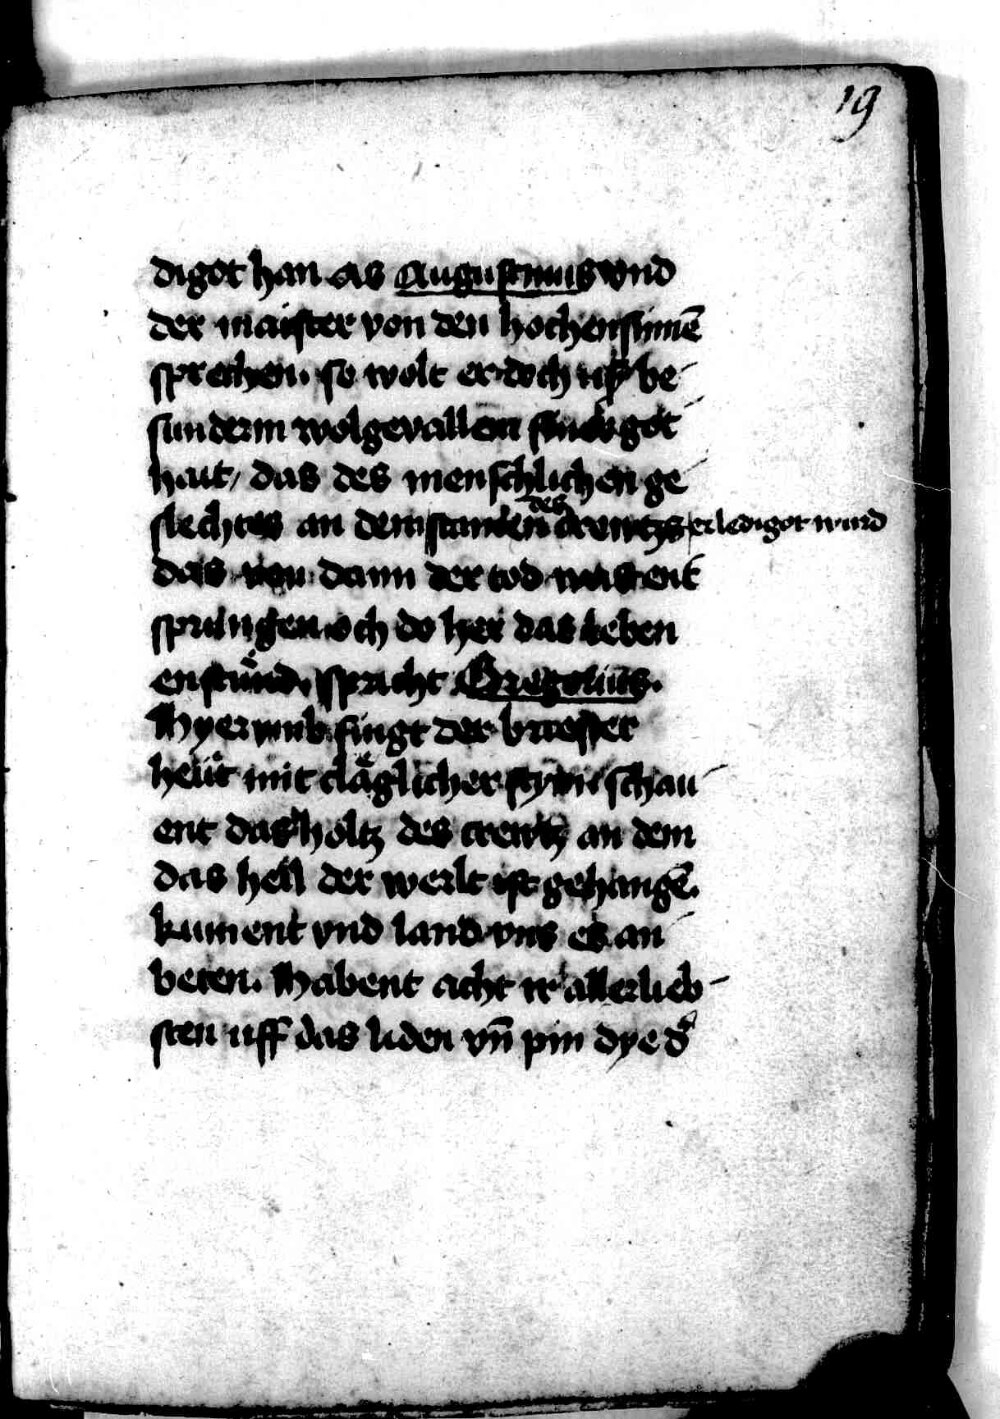 19
digot han as Augustinus vnd
der maister von den hochen sinnē
sprechen. so wolt er doch uß be-
sunderm wolgevallen got
hait, das des menschlichen ge-
slechtes an dem stammen des Crewtzs erledigot wurd
das von dann der tod was ent
sprungen och do her das leben
enstůnd. spricht Gregorius.
Hyer vmb singt der briester
heut mit cläglicher stym schau-
ent das holtz des crewtz an dem
das heil der werlt ist gehangē.
kument vnd land vns es an
beten. Habent acht ir allerlieb-
sten uff das liden vn̄ pin dye d'